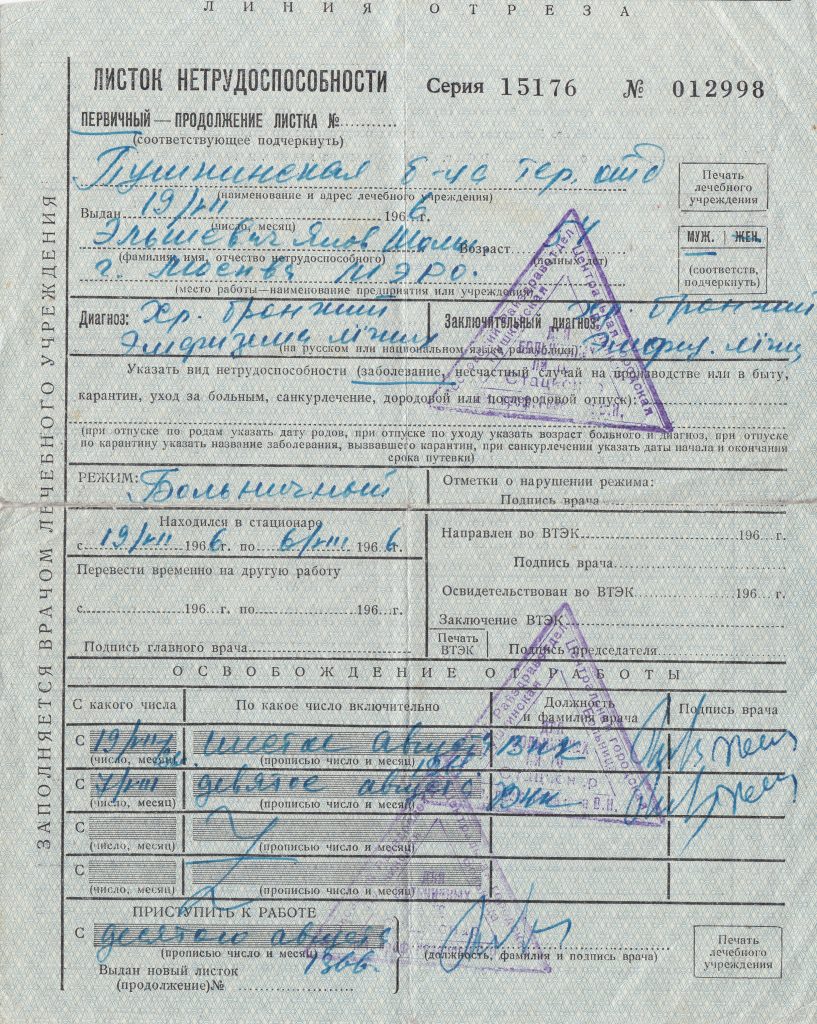 ЛИНИЯ ОТРЕЗА
ЛИСТОК НЕТРУДОСПОСОБНОСТИ Серия 15176 № 012998
ПЕРВИЧНЫЙ — ПРОДОЛЖЕНИЕ ЛИСТКА №
(соответствующее подчеркнуть)
Пушкинская б-ца тер. отд
(наименование и адрес лечебного учреждения)
Печать лечебного учреждения
Выдан 19/VII 1966 г.
(число, месяц)
Яков Возраст
(фамилия, имя, отчество нетрудоспособного) (полных лет)
МУЖ. ЖЕН.
(соответств. подчеркнуть)
г. Москва
(место работы—наименование предприятия или учреждения)
Диагноз: Хр. бронхит Заключительный диагноз: Хр. бронхит
Эмфизема лёгких Эмфиз. лёгк
(на русском или национальном языке республики)
Указать вид нетрудоспособности (заболевание, несчастный случай на производстве или в быту,
карантин, уход за больным, санкурлечение, дородовой или послеродовой отпуск):
(при отпуске по родам указать дату родов, при отпуске по уходу указать возраст больного и диагноз, при отпуске
по карантину указать название заболевания, вызвавшего карантин, при санкурлечении указать даты начала и окончания
срока путевки)
РЕЖИМ: Больничный Отметки о нарушении режима:
Подпись врача
Находился в стационаре
с 19/VII 1966 г. по 6/VIII 1966 г.
Направлен во ВТЭК 196 г.
Подпись врача
Перевести временно на другую работу
Освидетельствован во ВТЭК 196 г.
с 196 г. по 196 г.
Заключение ВТЭК
Подпись главного врача
Печать ВТЭК Подпись председателя
ОСВОБОЖДЕНИЕ ОТ РАБОТЫ
С какого числа По какое число включительно Должность и фамилия врача Подпись врача
С 19/VII шестое августа ВКК
(число, месяц) (прописью число и месяц)
С 7/VIII девятое августа ВКК
(число, месяц) (прописью число и месяц)
С
(число, месяц) (прописью число и месяц)
С
(число, месяц) (прописью число и месяц)
ПРИСТУПИТЬ К РАБОТЕ
С десятого августа
(прописью число и месяц) 1966.
(должность, фамилия и подпись врача)
Печать лечебного учреждения
Выдан новый листок
(продолжение) №
ЗАПОЛНЯЕТСЯ ВРАЧОМ ЛЕЧЕБНОГО УЧРЕЖДЕНИЯ